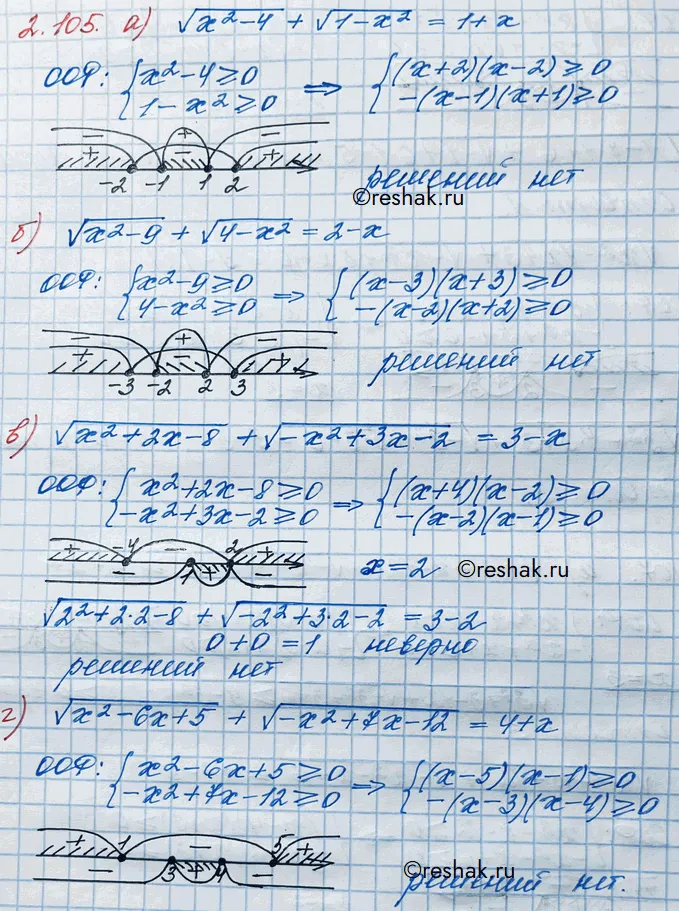 2.105. а) √(x²-4) + √(1-x²) = 1+x
ООФ: { x²-4⩾0 ⇒ { (x+2)(x-2)⩾0
{ 1-x²⩾0 { -(x-1)(x+1)⩾0
- + -
+ - +
-2 -1 1 2
решений нет
©reshak.ru
б) √(x²-9) + √(4-x²) = 2-x
ООФ: { x²-9⩾0 ⇒ { (x-3)(x+3)⩾0
{ 4-x²⩾0 { -(x-2)(x+2)⩾0
- + -
+ - +
-3 -2 2 3
решений нет
в) √(x²+2x-8) + √(-x²+3x-2) = 3-x
ООФ: { x²+2x-8⩾0 ⇒ { (x+4)(x-2)⩾0
{ -x²+3x-2⩾0 { -(x-2)(x-1)⩾0
+ -4 - 2 +
- 1 + -
x=2
©reshak.ru
√(2²+2·2-8) + √(-2²+3·2-2) = 3-2
0+0=1 неверно
решений нет
г) √(x²-6x+5) + √(-x²+7x-12) = 4+x
ООФ: { x²-6x+5⩾0 ⇒ { (x-5)(x-1)⩾0
{ -x²+7x-12⩾0 { -(x-3)(x-4)⩾0
+ 1 - 5 +
- 3 + 4 -
©reshak.ru
решений нет.